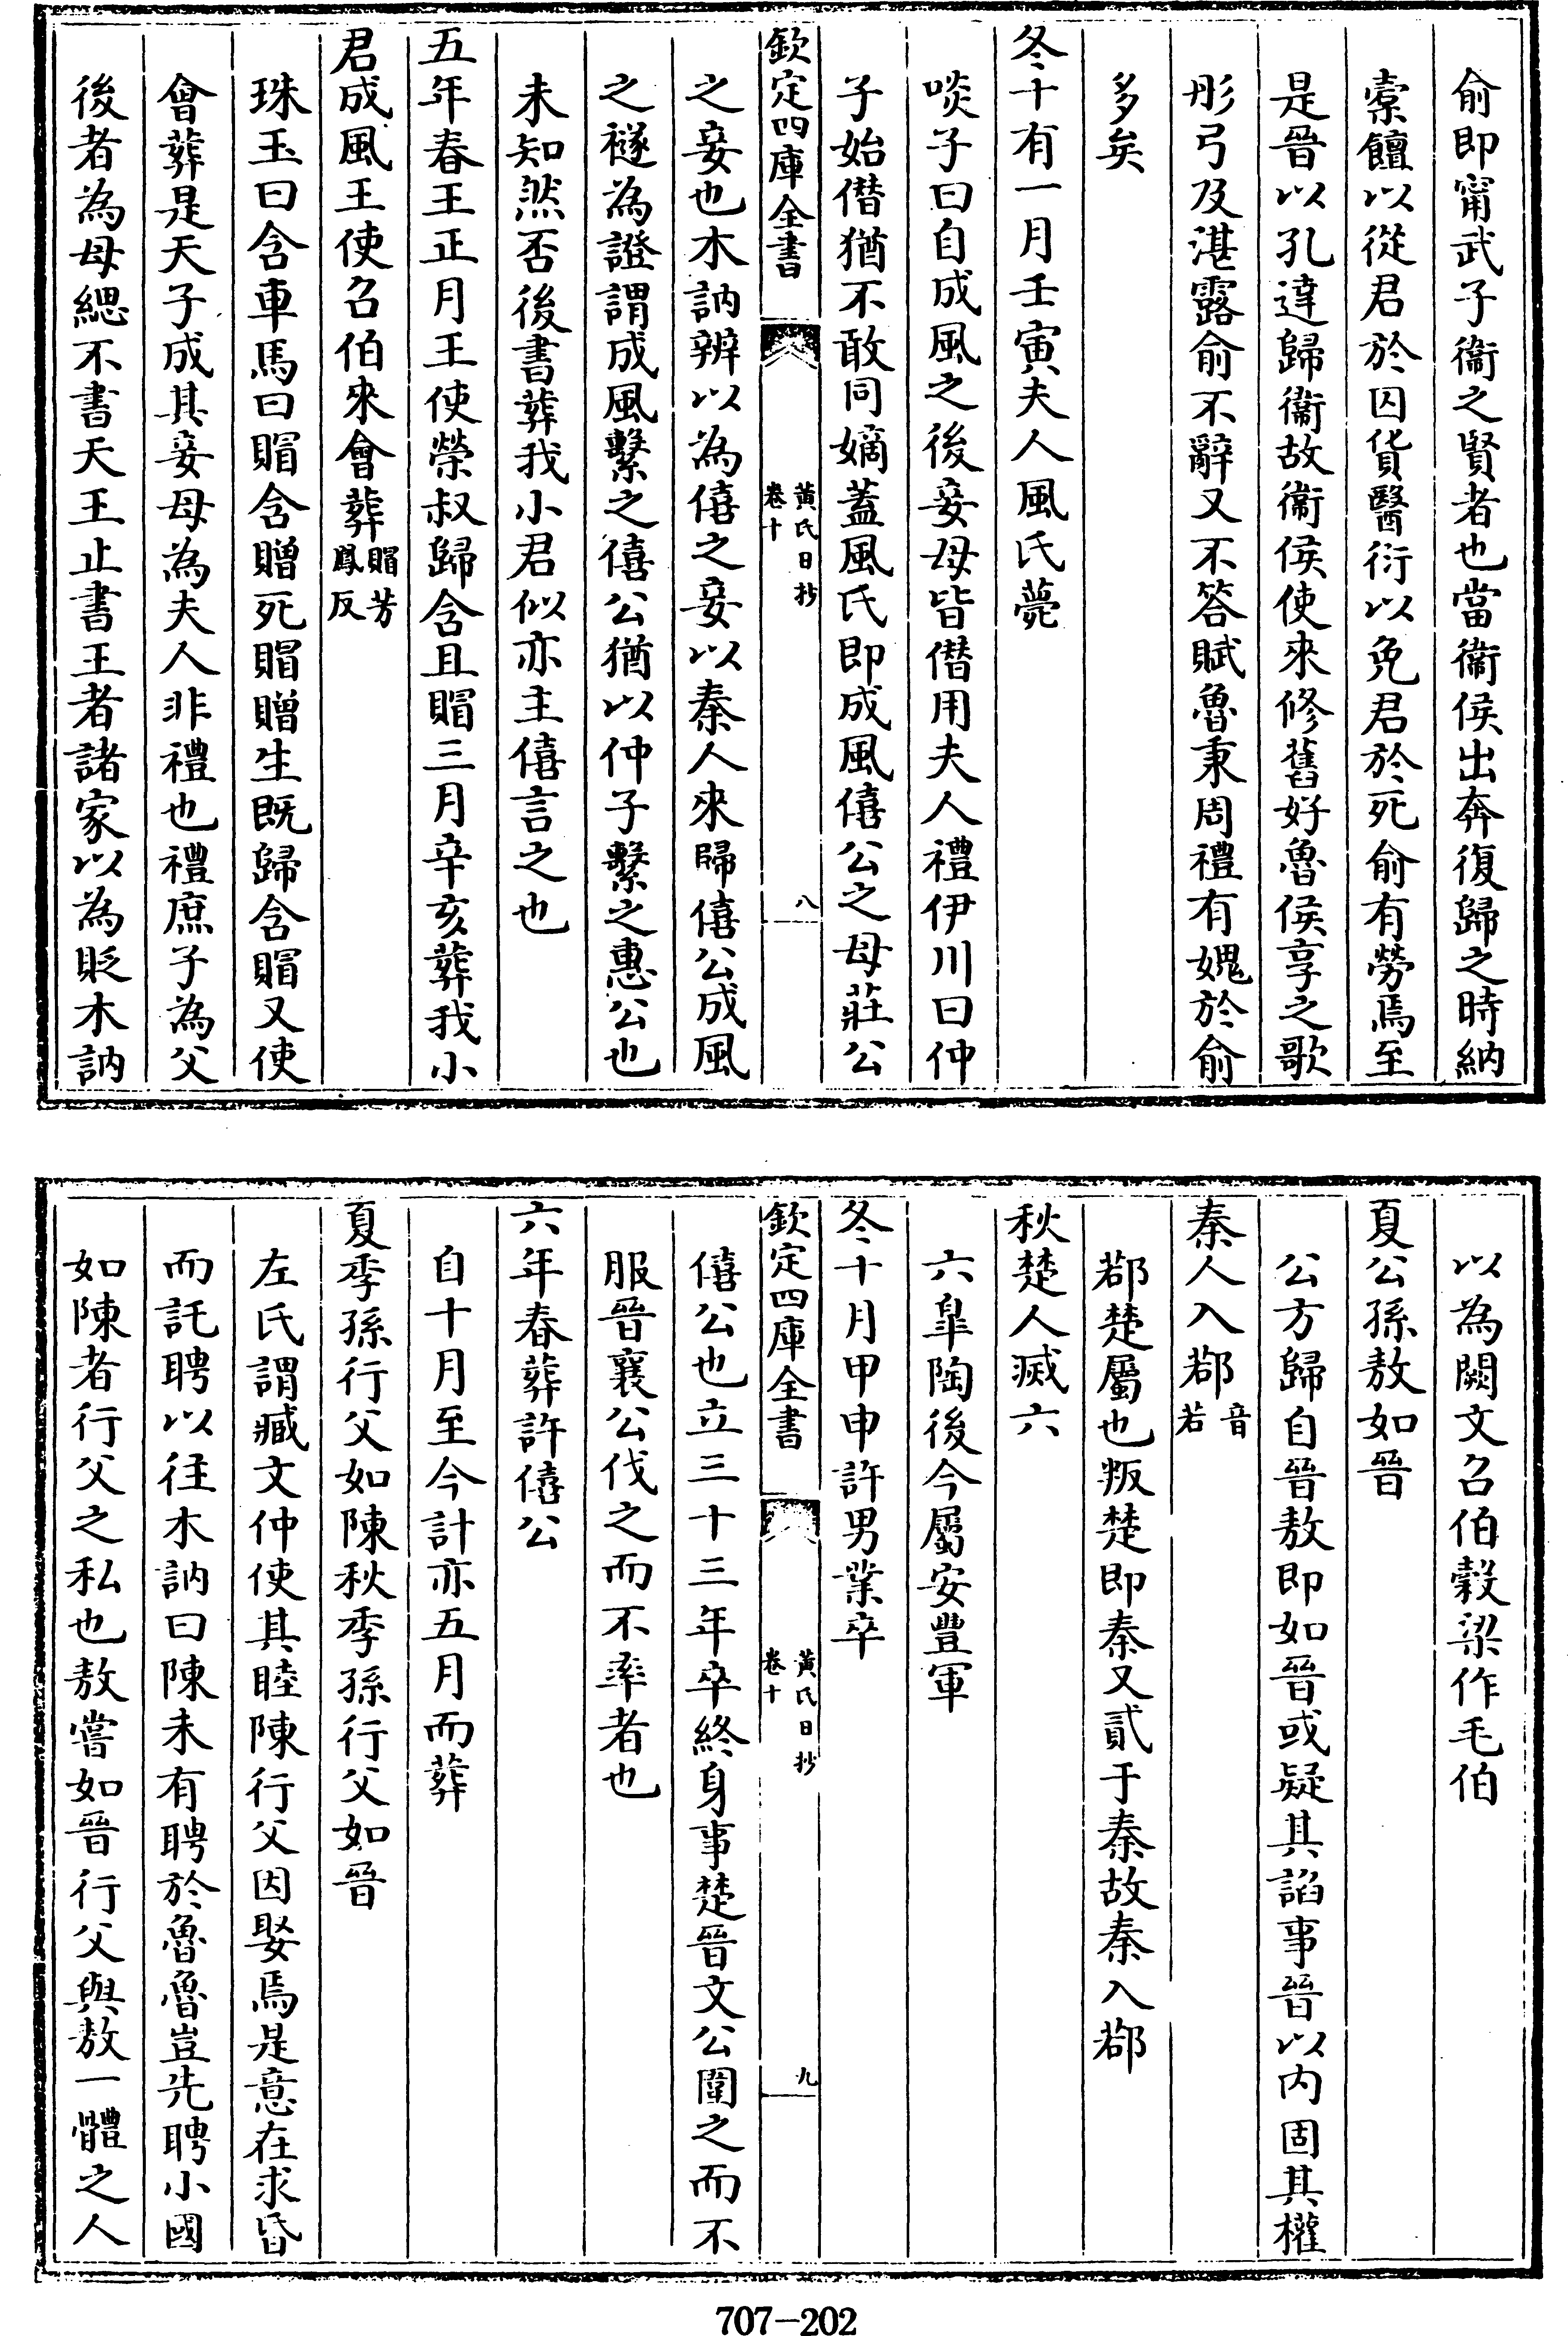 俞即甯武子衞之賢者也當衞侯出奔復歸之時納
槖饘以從君於囚貨醫衍以免君於死俞有勞焉至
是晉以孔達歸衞故衞侯使來修舊好魯侯享之歌
彤弓及湛露俞不辭又不答賦魯秉周禮有媿於俞
多矣
冬十有一月壬寅夫人風氏薨
啖子曰自成風之後妾母皆僭用夫人禮伊川曰仲
子始僭猶不敢同嫡蓋風氏即成風僖公之母莊公
欽定四庫全書
黄氏日抄
卷十
八
之妾也木訥辨以為僖之妾以秦人來歸僖公成風
之襚為證謂成風繫之僖公猶以仲子繫之惠公也
未知然否後書葬我小君似亦主僖言之也
五年春王正月王使榮叔歸含且賵三月辛亥葬我小
君成風王使召伯來會葬賵芳鳳反
珠玉曰含車馬曰賵含贈死賵贈生既歸含賵又使
會葬是天子成其妾母為夫人非禮也禮庶子為父
後者為母緦不書天王止書王者諸家以為貶木訥
以為闕文召伯穀梁作毛伯
夏公孫敖如晉
公方歸自晉敖即如晉或疑其謟事晉以内固其權
秦人入鄀音若
鄀楚屬也叛楚即秦又貳于秦故秦入鄀
秋楚人滅六
六臯陶後今屬安豐軍
冬十月甲申許男業卒
欽定四庫全書
黄氏日抄
卷十
九
僖公也立三十三年卒終身事楚晉文公圍之而不
服晉襄公伐之而不率者也
六年春葬許僖公
自十月至今計亦五月而葬
夏季孫行父如陳秋季孫行父如晉
左氏謂臧文仲使其睦陳行父因娶焉是意在求昏
而託聘以往木訥曰陳未有聘於魯魯豈先聘小國
如陳者行父之私也敖嘗如晉行父與敖一體之人
707-202